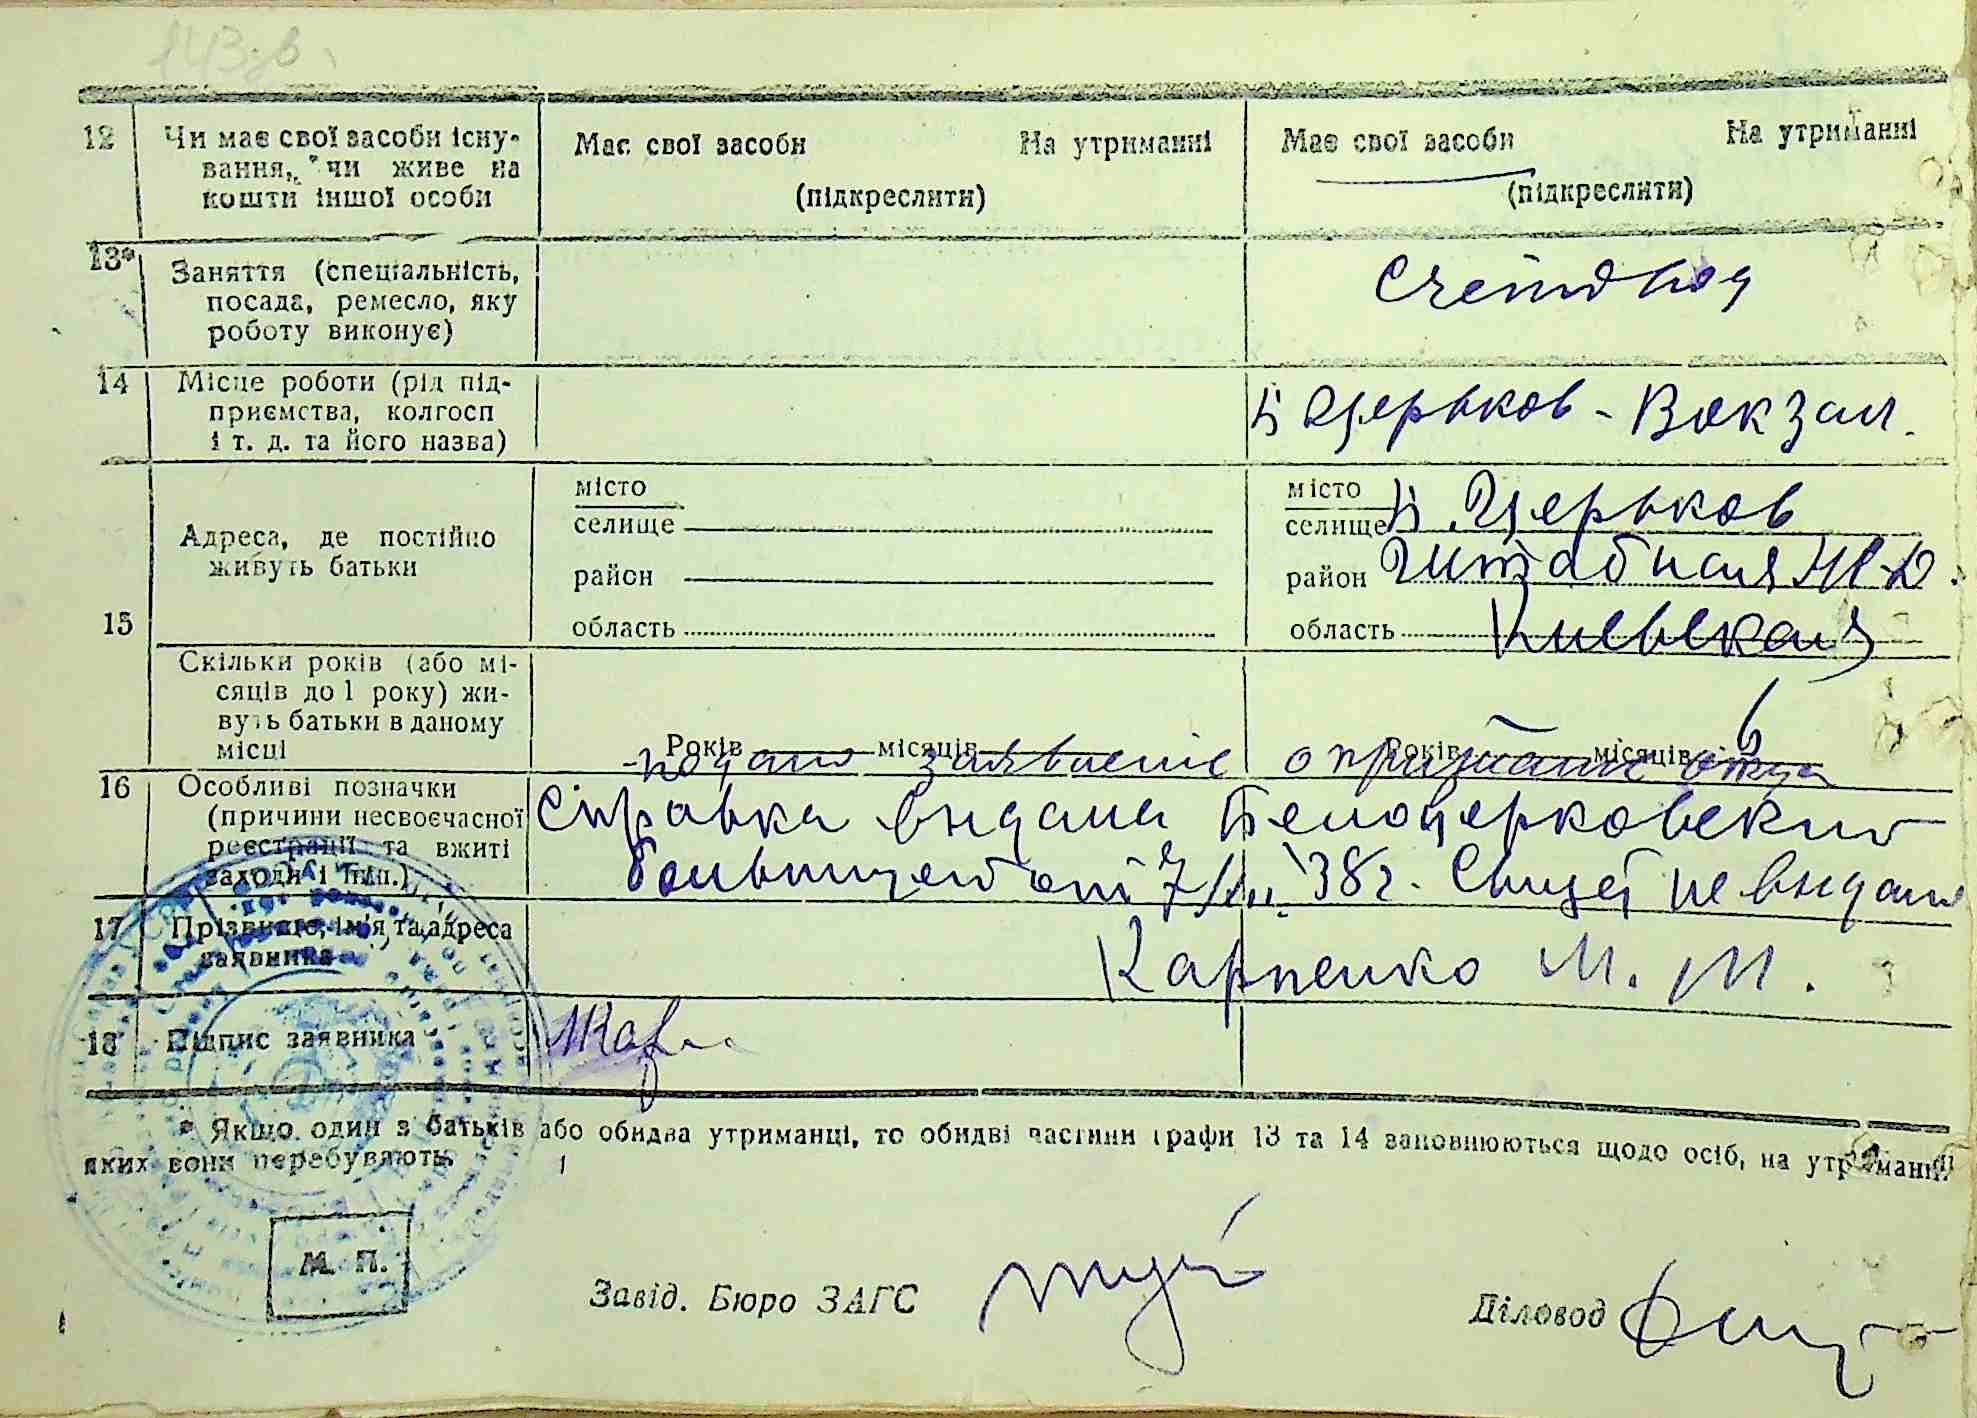 143зв
12 Чи має свої засоби існу-
вання, чи живе на
кошти іншої особи
Має свої засоби На утриманні
(підкреслити)
Має свої засоби На утриманні
(підкреслити)
13* Заняття (спеціальність,
посада, ремесло, яку
роботу виконує)
Счетовод
14 Місце роботи (рід під-
приємства, колгосп
і т. д. та його назва)
Б Церьков - Вокзал.
15 Адреса, де постійно
живуть батьки
місто
селище
район
область
місто
селище Б. Церьков
район Штабная
область Киевская
Скільки років (або мі-
сяців до 1 року) жи-
вуть батьки в даному
місці
Років місяців
Років місяців 6
подано заявление о отца
16 Особливі позначки
(причини несвоєчасної
реєстрації та вжиті
заходи і інш.)
Справка выдана Белоцерковский
больницей от 7/ 38 г. Свидет не выдано
17 Прізвище, ім'я та адреса
заявника
Карпенко М. М.
18 Підпис заявника
* Якщо один з батьків або обидва утриманці, то обидві частини графи 13 та 14 заповнюються щодо осіб, на утриманні
яких вони перебувають.
М. П.
Завід. Бюро ЗАГС
Діловод